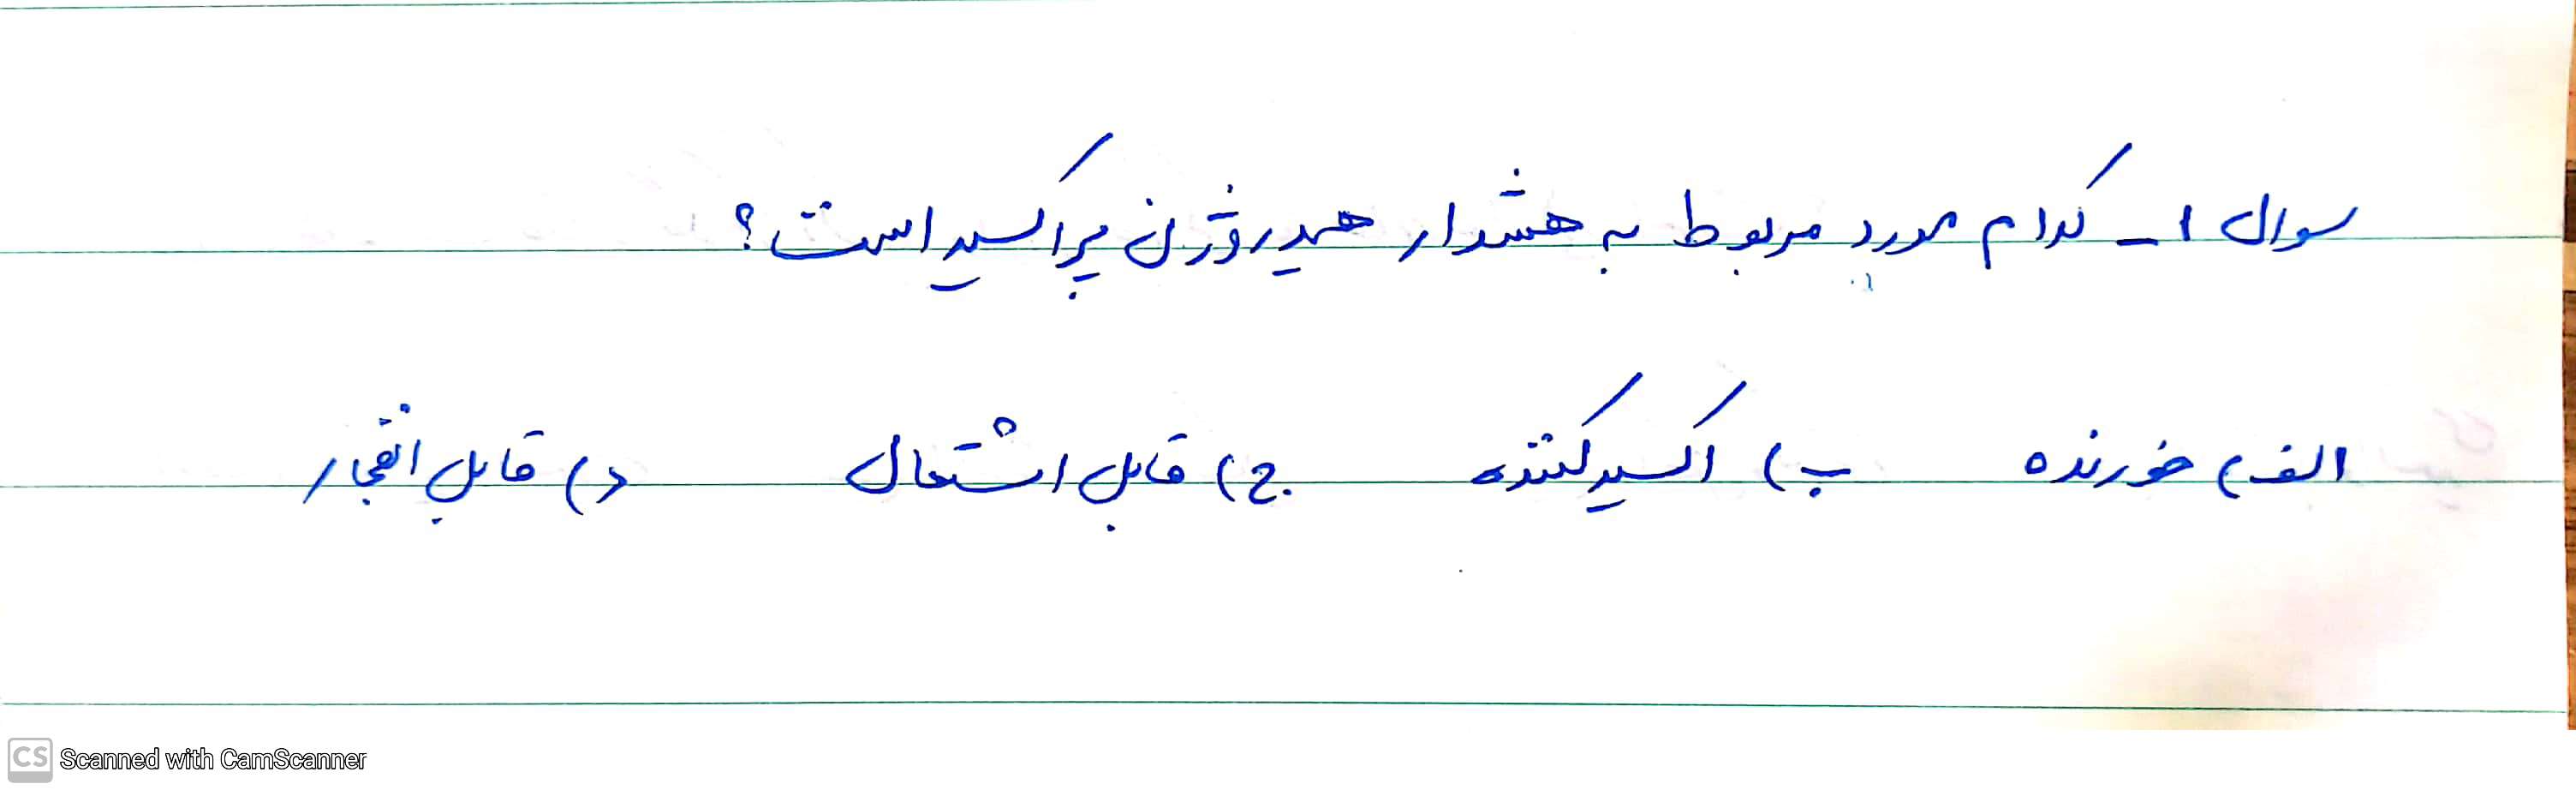 سوال ۱ - کدام مورد مربوط به هشدار هیدروژن پراکسید است؟
الف) خورنده ب) اکسید کننده ج) قابل اشتعال د) قابل انفجار
CS Scanned with CamScanner